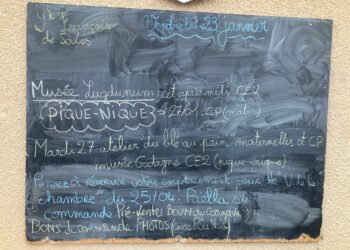 St François
de Sales
Vendredi 23 janvier
Musée Lugdunum cet après-midi CE2
PIQUE-NIQUE → 27/01 CP (matin)
Mardi 27 atelier du blé au pain maternelles et CP
musée Gadagne CE2 (pique-nique)
Pensez à réserver votre emplacement pour le V de la
chambre du 25/04. Paëlla s/
commande Pré-ventes
BONS de commande PHOTOS